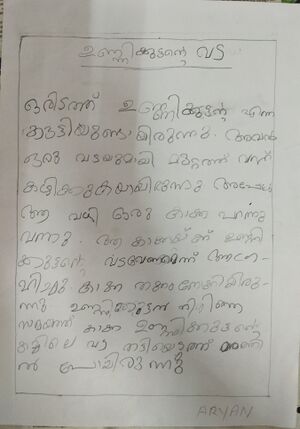 ഉണ്ണിക്കുട്ടന്റെ വട
ഒരിടത്ത് ഉണ്ണിക്കുട്ടൻ എന്ന
കുട്ടിയുണ്ടായിരുന്നു. അവൻ
ഒരു വടയുമായി മുറ്റത്ത് വന്ന്
കഴിക്കുകയായിരുന്നു അപ്പോൾ
ആ വഴി ഒരു കാക്ക പറന്നു
വന്നു. ആ കാക്കയ്ക്ക് ഉണ്ണി
ക്കുട്ടന്റെ വടവേണമെന്ന് ആഗ്ര
ഹിച്ചു. കാക്ക തക്കംനോക്കിയിരു
ന്നു ഉണ്ണിക്കുട്ടൻ തിരിഞ്ഞ
സമയത്ത് കാക്ക ഉണ്ണിക്കുട്ടന്റെ
കയ്യിലെ വട തട്ടിയെടുത്ത്
പോയിരുന്നു
ARYAN